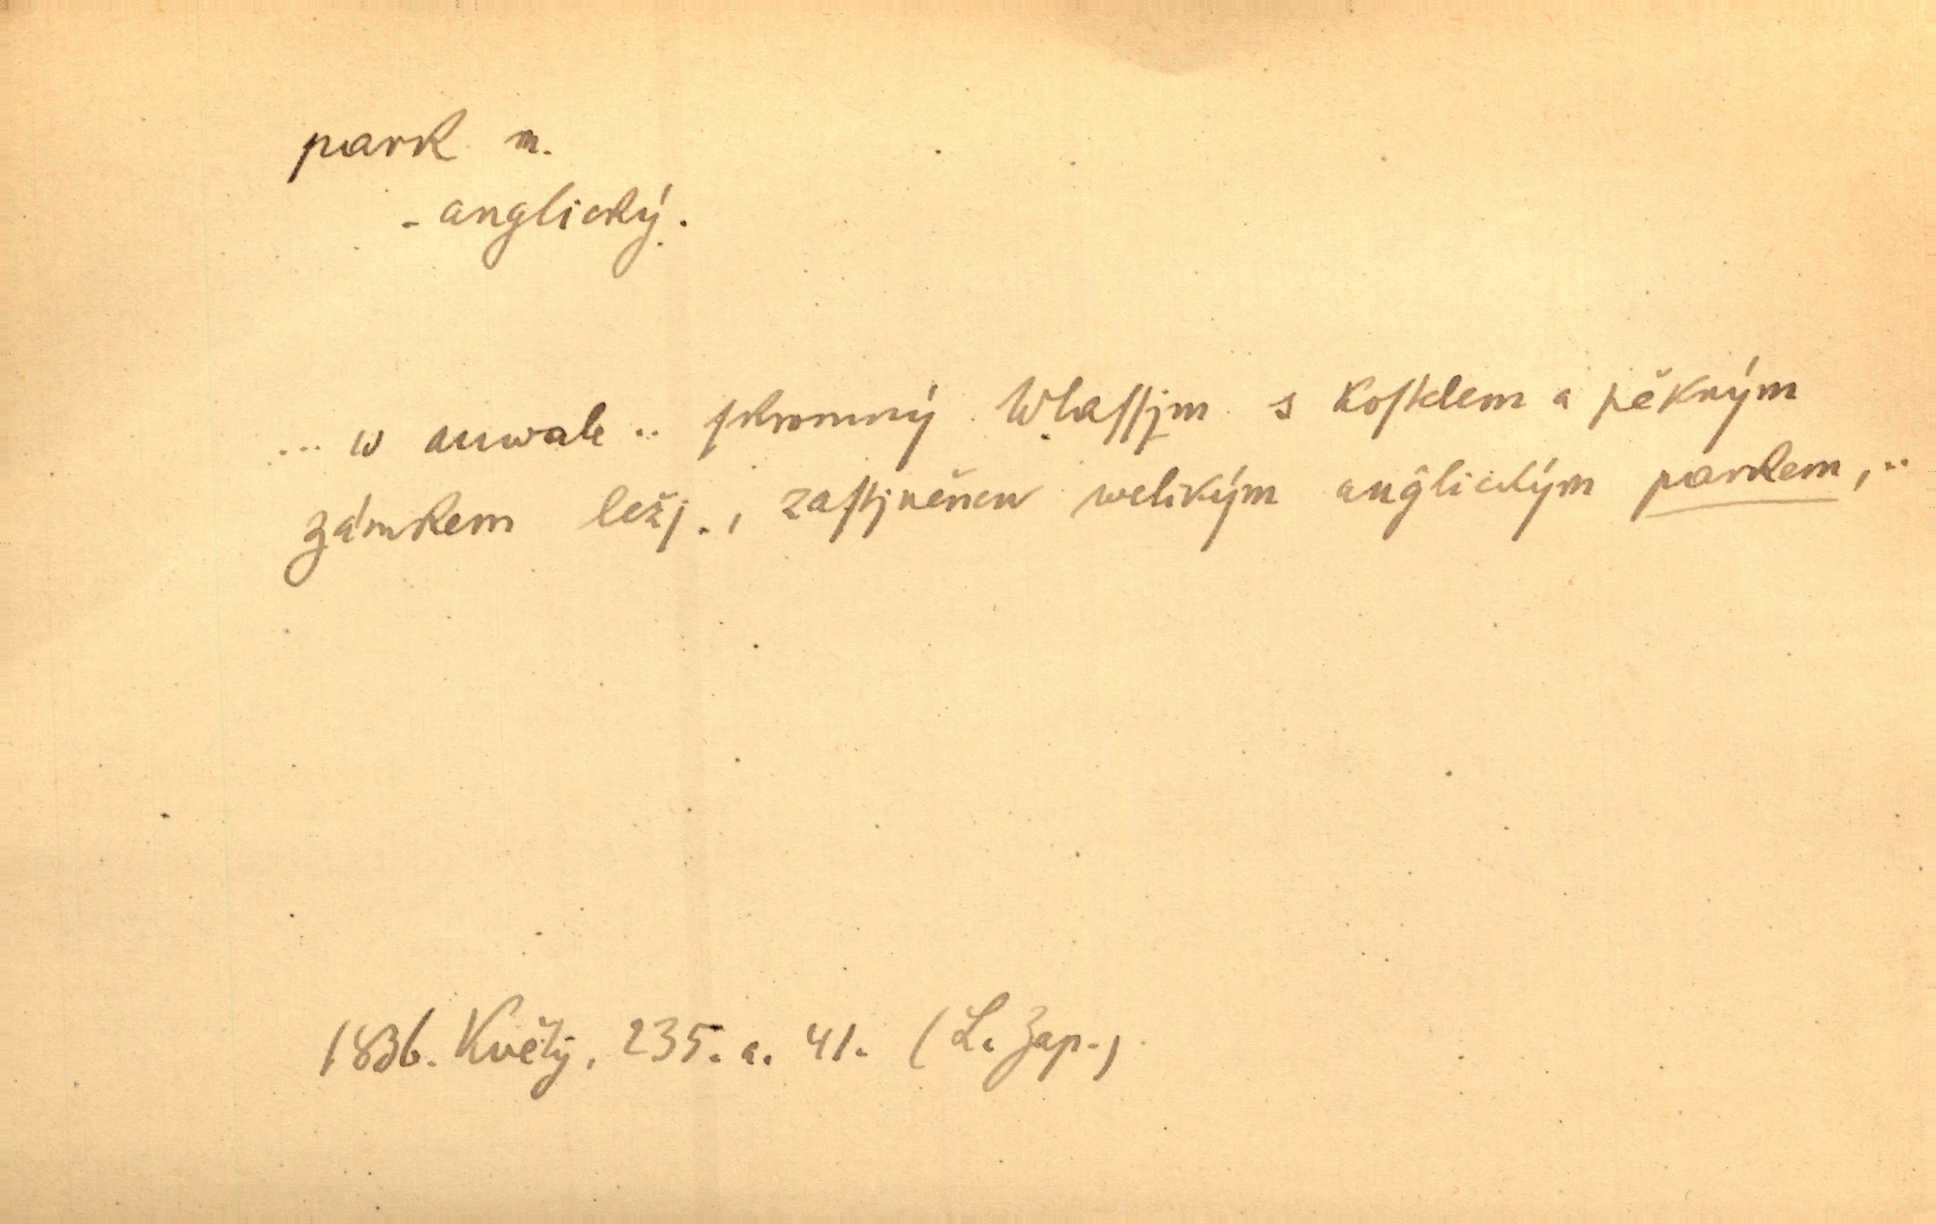 park m.
- anglický.
... w auwale .. ſkromný Wlaſſjm s koſtelem a pěkným
zámkem ležj., zaſtjněnew welikým anĝlickým parkem, ..
1836. Květy, 235. a. 41. (L. Zap.)